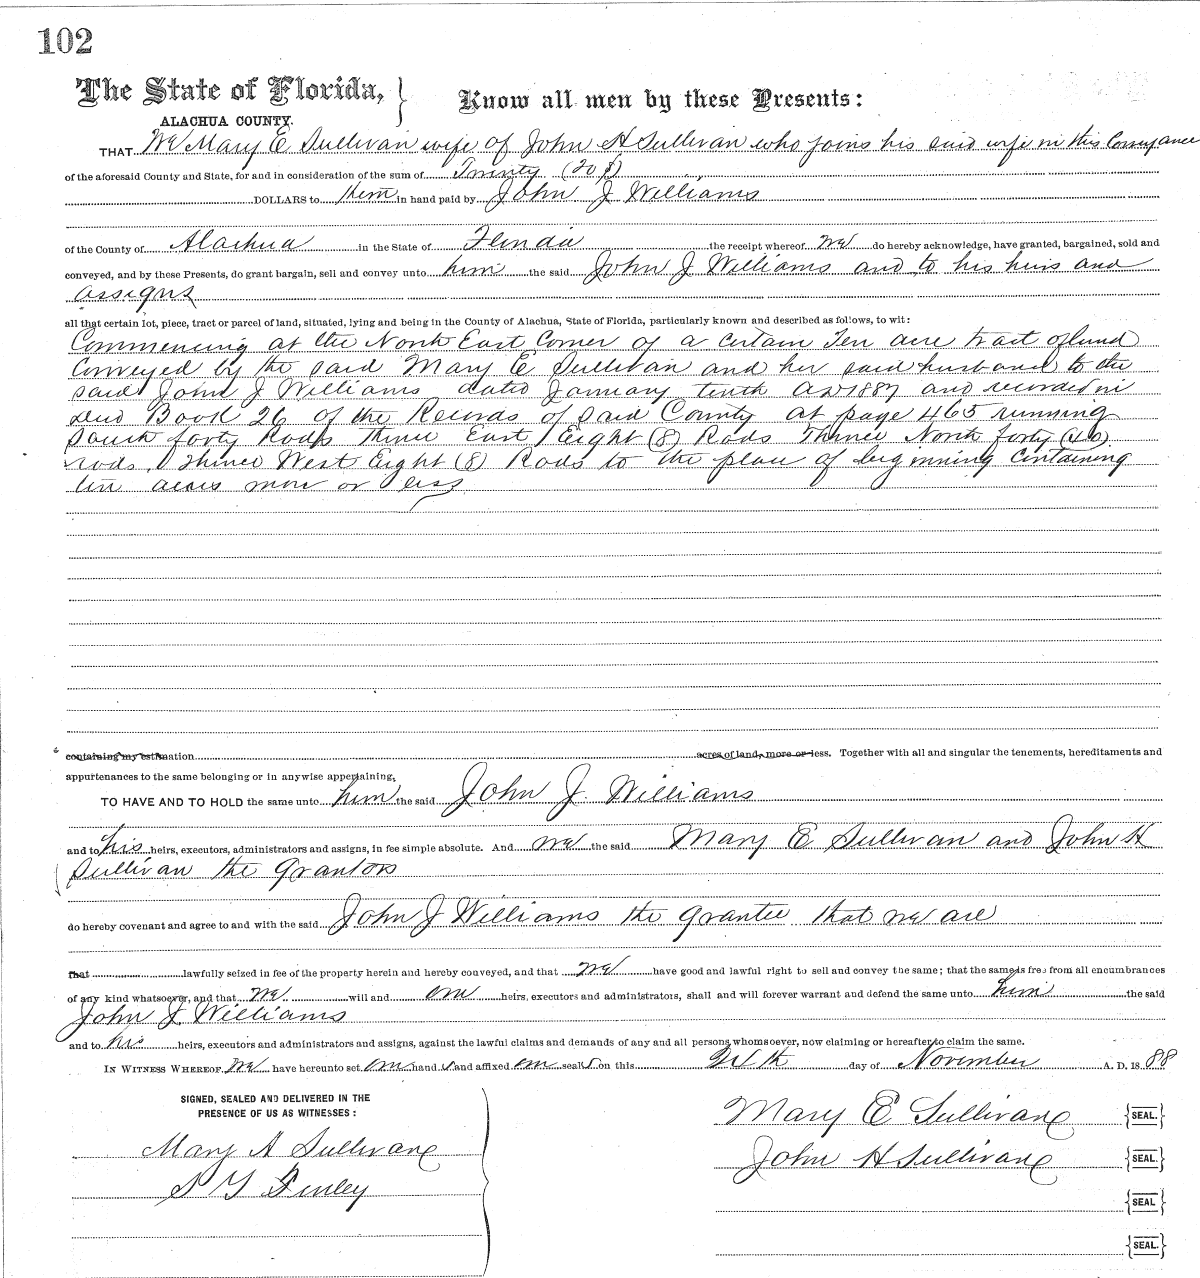 102
The State of Florida, } Know all men by these Presents:
ALACHUA COUNTY.
THAT We Mary E Sullivan wife of John H Sullivan who joins his said wife in this Conveyance
of the aforesaid County and State, for and in consideration of the sum of Twenty (20 $)
DOLLARS to them in hand paid by John J Williams
of the County of Alachua in the State of Florida the receipt whereof we do hereby acknowledge, have granted, bargained, sold and
conveyed, and by these Presents, do grant bargain, sell and convey unto him the said John J Williams and to his heirs and
assigns
all that certain lot, piece, tract or parcel of land, situated, lying and being in the County of Alachua, State of Florida, particularly known and described as follows, to wit:
Commencing at the North East Corner of a certain Ten acre tract of land
Conveyed by the said Mary E Sullivan and her said husband to the
said John J Williams dated January tenth AD 1887 and recorded in
Deed Book 26 of the Records of said County at page 465 running
South forty Rods thence East Eight (8) Rods Thence North forty (40)
rods, thence West Eight (8) Rods to the place of beginning Containing
acres more or less
containing my estimation acres of land, more or less. Together with all and singular the tenements, hereditaments and
appurtenances to the same belonging or in anywise appertaining,
TO HAVE AND TO HOLD the same unto him the said John J. Williams
and to his heirs, executors, administrators and assigns, in fee simple absolute. And we the said Mary E Sullivan and John H
Sullivan the grantors
do hereby covenant and agree to and with the said John J Williams the grantee that we are
that lawfully seized in fee of the property herein and hereby conveyed, and that we have good and lawful right to sell and convey the same; that the same is free from all encumbrances
of any kind whatsoever, and that we will and our heirs, executors and administrators, shall and will forever warrant and defend the same unto him the said
John J. Williams
and to his heirs, executors and administrators and assigns, against the lawful claims and demands of any and all persons whomsoever, now claiming or hereafter to claim the same.
IN WITNESS WHEREOF, We have hereunto set our hand s and affixed our seal s on this day of November A. D. 1888
SIGNED, SEALED AND DELIVERED IN THE
PRESENCE OF US AS WITNESSES:
Mary E Sullivan {SEAL.}
Mary A Sullivan
John H Sullivan {SEAL.}
S Y Finley
{SEAL}
{SEAL.}